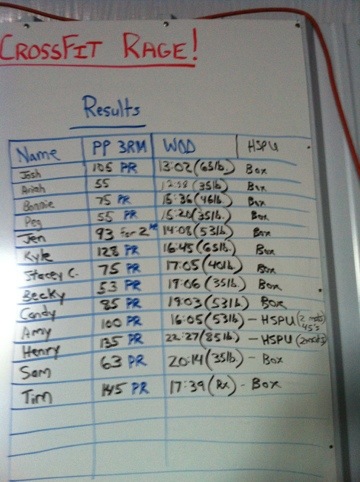 CROSSFIT RAGE!
Results
Name PP 3RM WOD HSPU
Josh 105 PR 13:02 (65lb.) Box
Ariah 55 12:58 (35lb) Box
Bonnie 75 PR 15:36 (45lb) Box
Peg 55 PR 15:20 (35lb) Box
Jen 93 for 2 14:08 (53lb) Box
Kyle 128 PR 16:45 (65lb) Box
Stacey C. 75 PR 17:05 (40lb) Box
Becky 53 PR 19:06 (35lb) Box
Candy 85 PR 19:03 (53lb) Box
Amy 100 PR 16:05 (53lb) - HSPU (2 mats 45's
Henry 135 PR 22:27 (85lb) - HSPU (2 mats)
Sam 63 PR 20:14 (35lb.) - Box
Tim 145 PR 17:39 (Rx) - Box